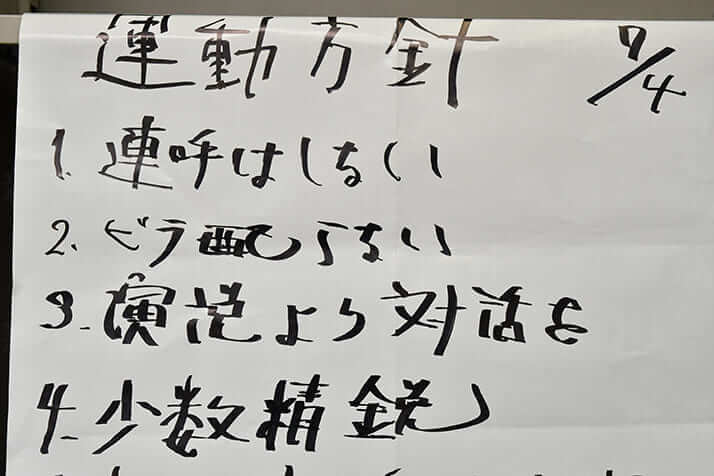 運動方針 7/4
1. 連呼はしない
2. ビラ配らない
3. 演説より対話を
4. 少数精鋭